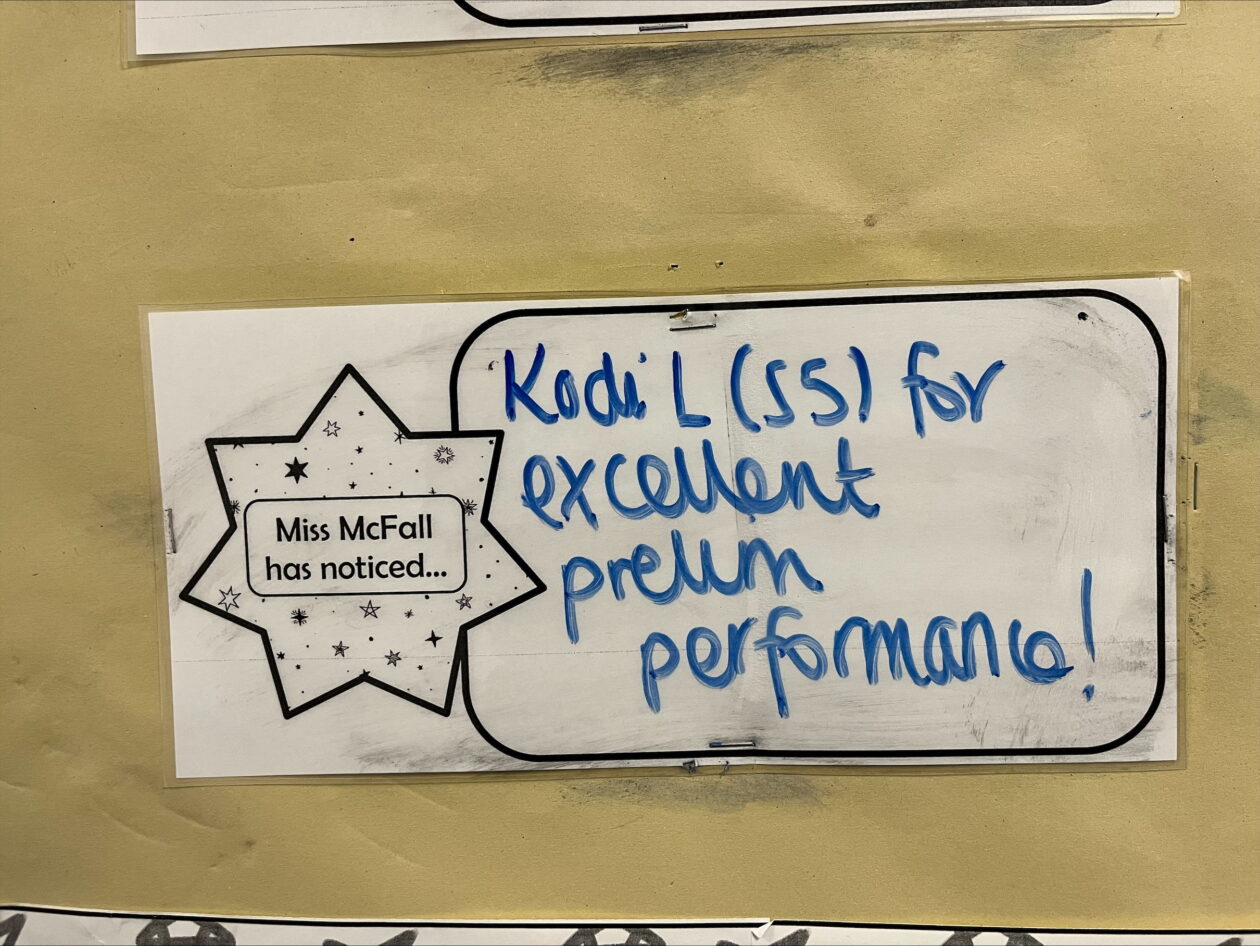 Miss McFall
has noticed...
Kodi L (S5) for
excellent
prelim
performance!